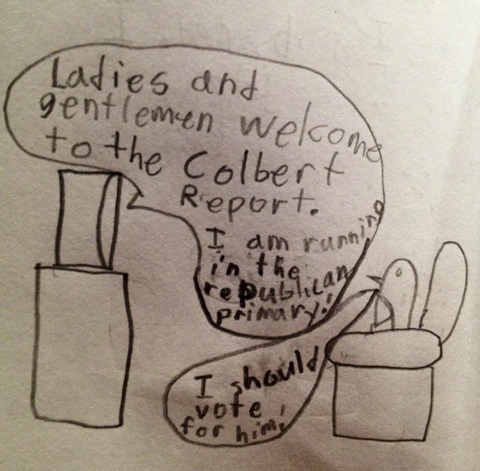 Ladies and
gentlemen welcome
to the Colbert
Report.
I am running
in the
republican
primary!
I should
vote
for him!